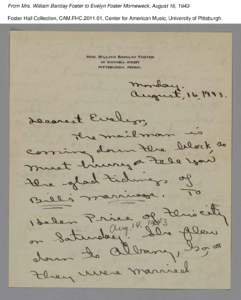 From Mrs. William Barclay Foster to Evelyn Foster Morneweck, August 16, 1943
Foster Hall Collection, CAM.FHC.2011.01, Center for American Music, University of Pittsburgh.
MRS. WILLIAM BARCLAY FOSTER
PITTSBURGH, PENNA.
Monday.
August, 16, 1943.
Dearest Evelyn,
The mailman is
coming down the block so
must hurry & tell you
the glad tidings of
Bill's marriage. To
Helen Price of this city
on Saturday. Aug 14, 1943 She flew
down to Albany, Ga, &
they were married